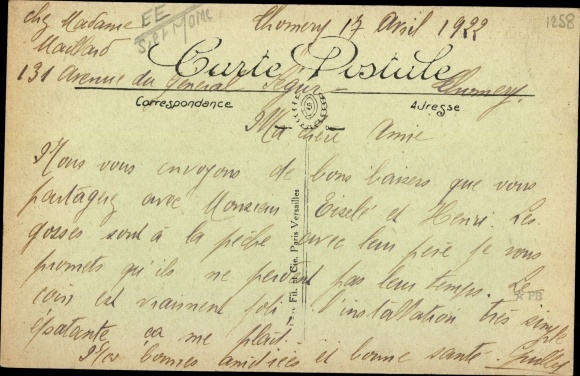 chez Madame
Maillard
EE
SEPT MOINE
Thomery 17 Avril 1922
1258
Carte Postale
131 Avenue du Général Ségur - Thomery.
Correspondance
Adresse
Ma chère Amie
Nous vous envoyons de bons baisers que vous
partagerez avec Monsieur Eiselé et Henri. Les
gosses sont à la pêche avec leur père je vous
promets qu'ils ne perdent pas leur temps. Le
coin est vraiment joli l'installation très simple
épatante, ça me plait.
bonnes amitiés et bonne santé.
Fils et Cie, Paris Versailles
PB